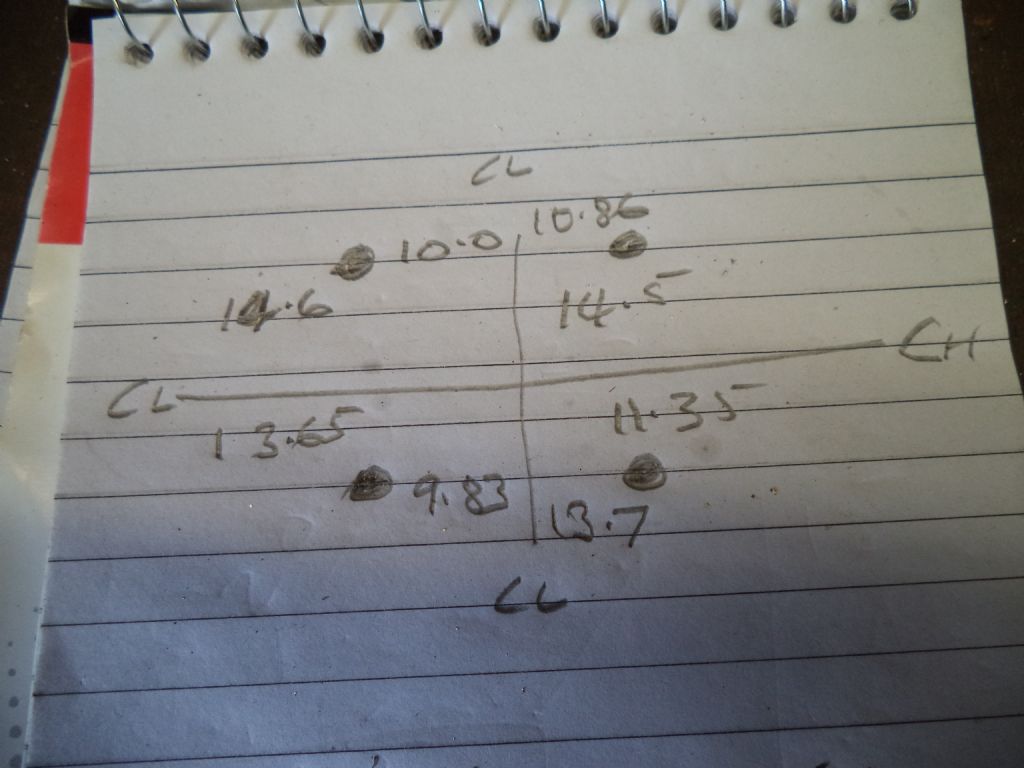 CL
10.86
10.0
14.6
14.5
CH
CL
13.65
11.35
9.83
13.7
CL